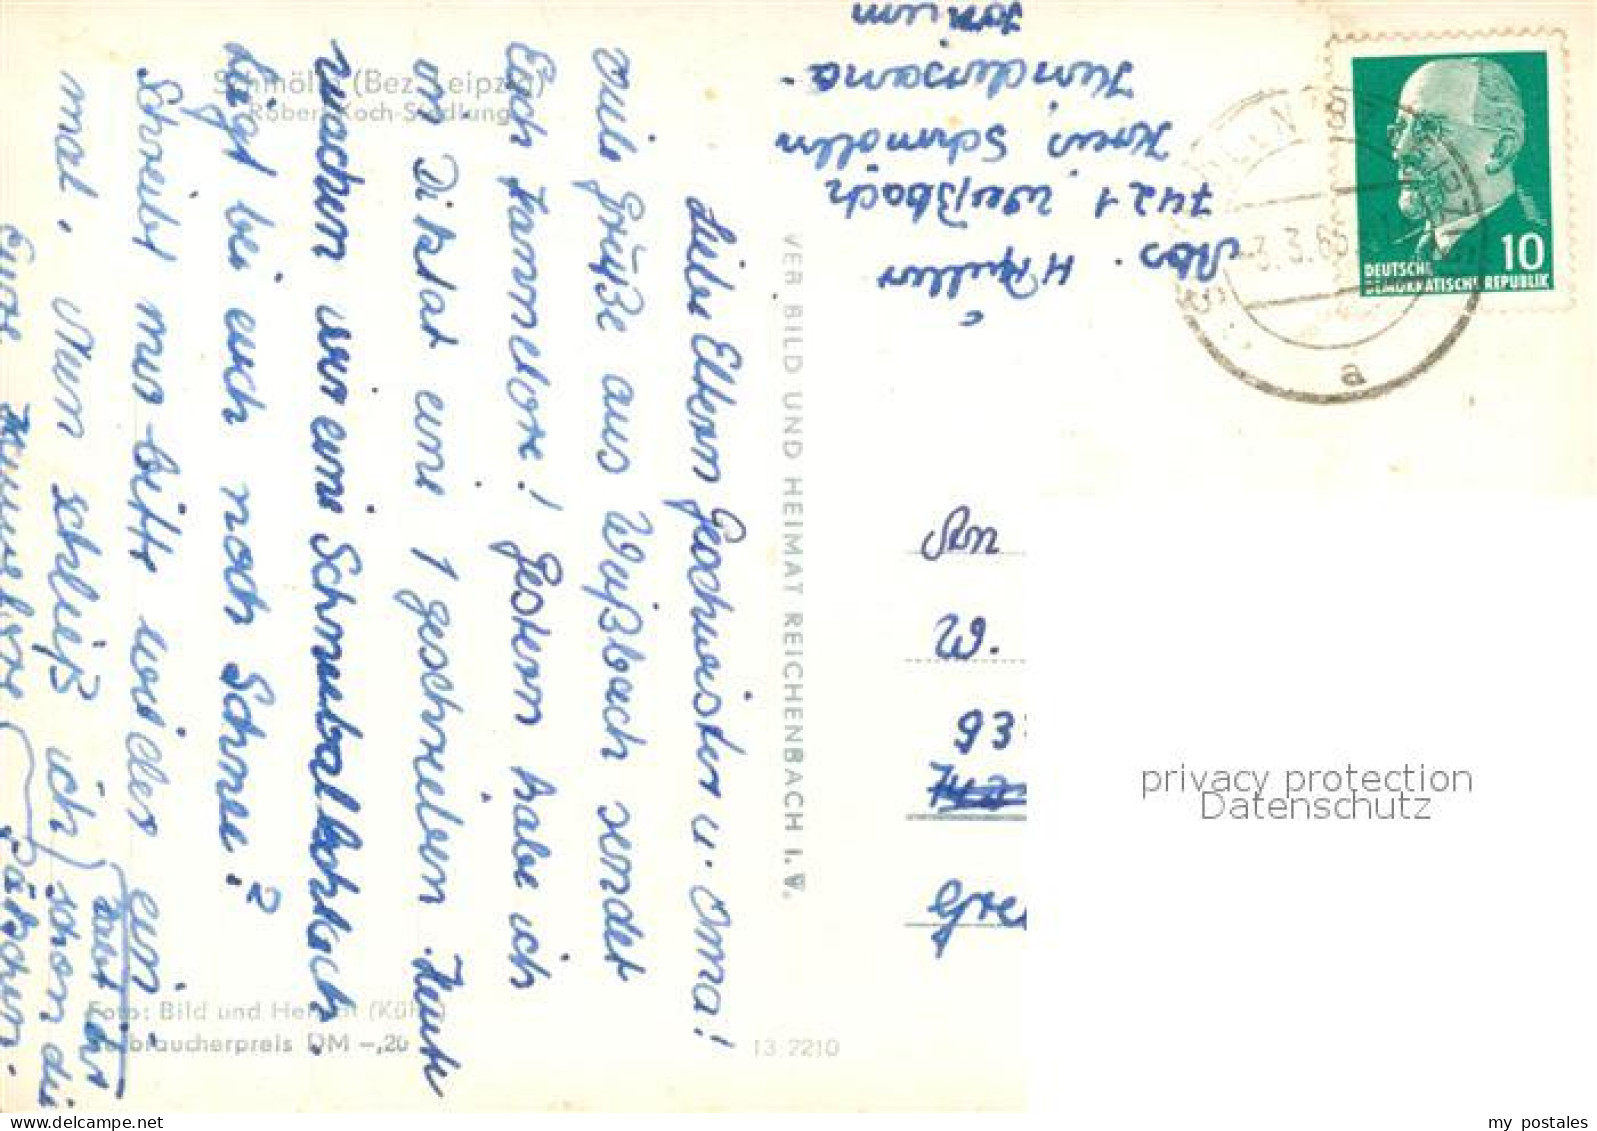 Schmölln (Bez. Leipzig)
Robert-Koch-Siedlung
Liebe Eltern Geschwister u. Oma!
viele Grüße aus Weißbach sendet
Euch Hannelore! Gestern habe ich
im Diktat eine 1 geschrieben. Heute
machen wir eine Schneeballschlacht.
Liegt bei euch noch Schnee?
Schreibt mir bitte wieder ein
mal. Nun schließ ich
schon die
Eure Hannelore
Päkchen.
Foto: Bild und Heimat (Kühn)
Verbraucherpreis DM -,20
13 2210
VEB BILD UND HEIMAT REICHENBACH I. V.
Abs. H
7421 Weißbach
Kreis Schmölln
Kindersana-
torium
10
DEUTSCHE
DEMOKRATISCHE REPUBLIK
3.3.65
a
An
W.
93
privacy protection
Datenschutz
my postales